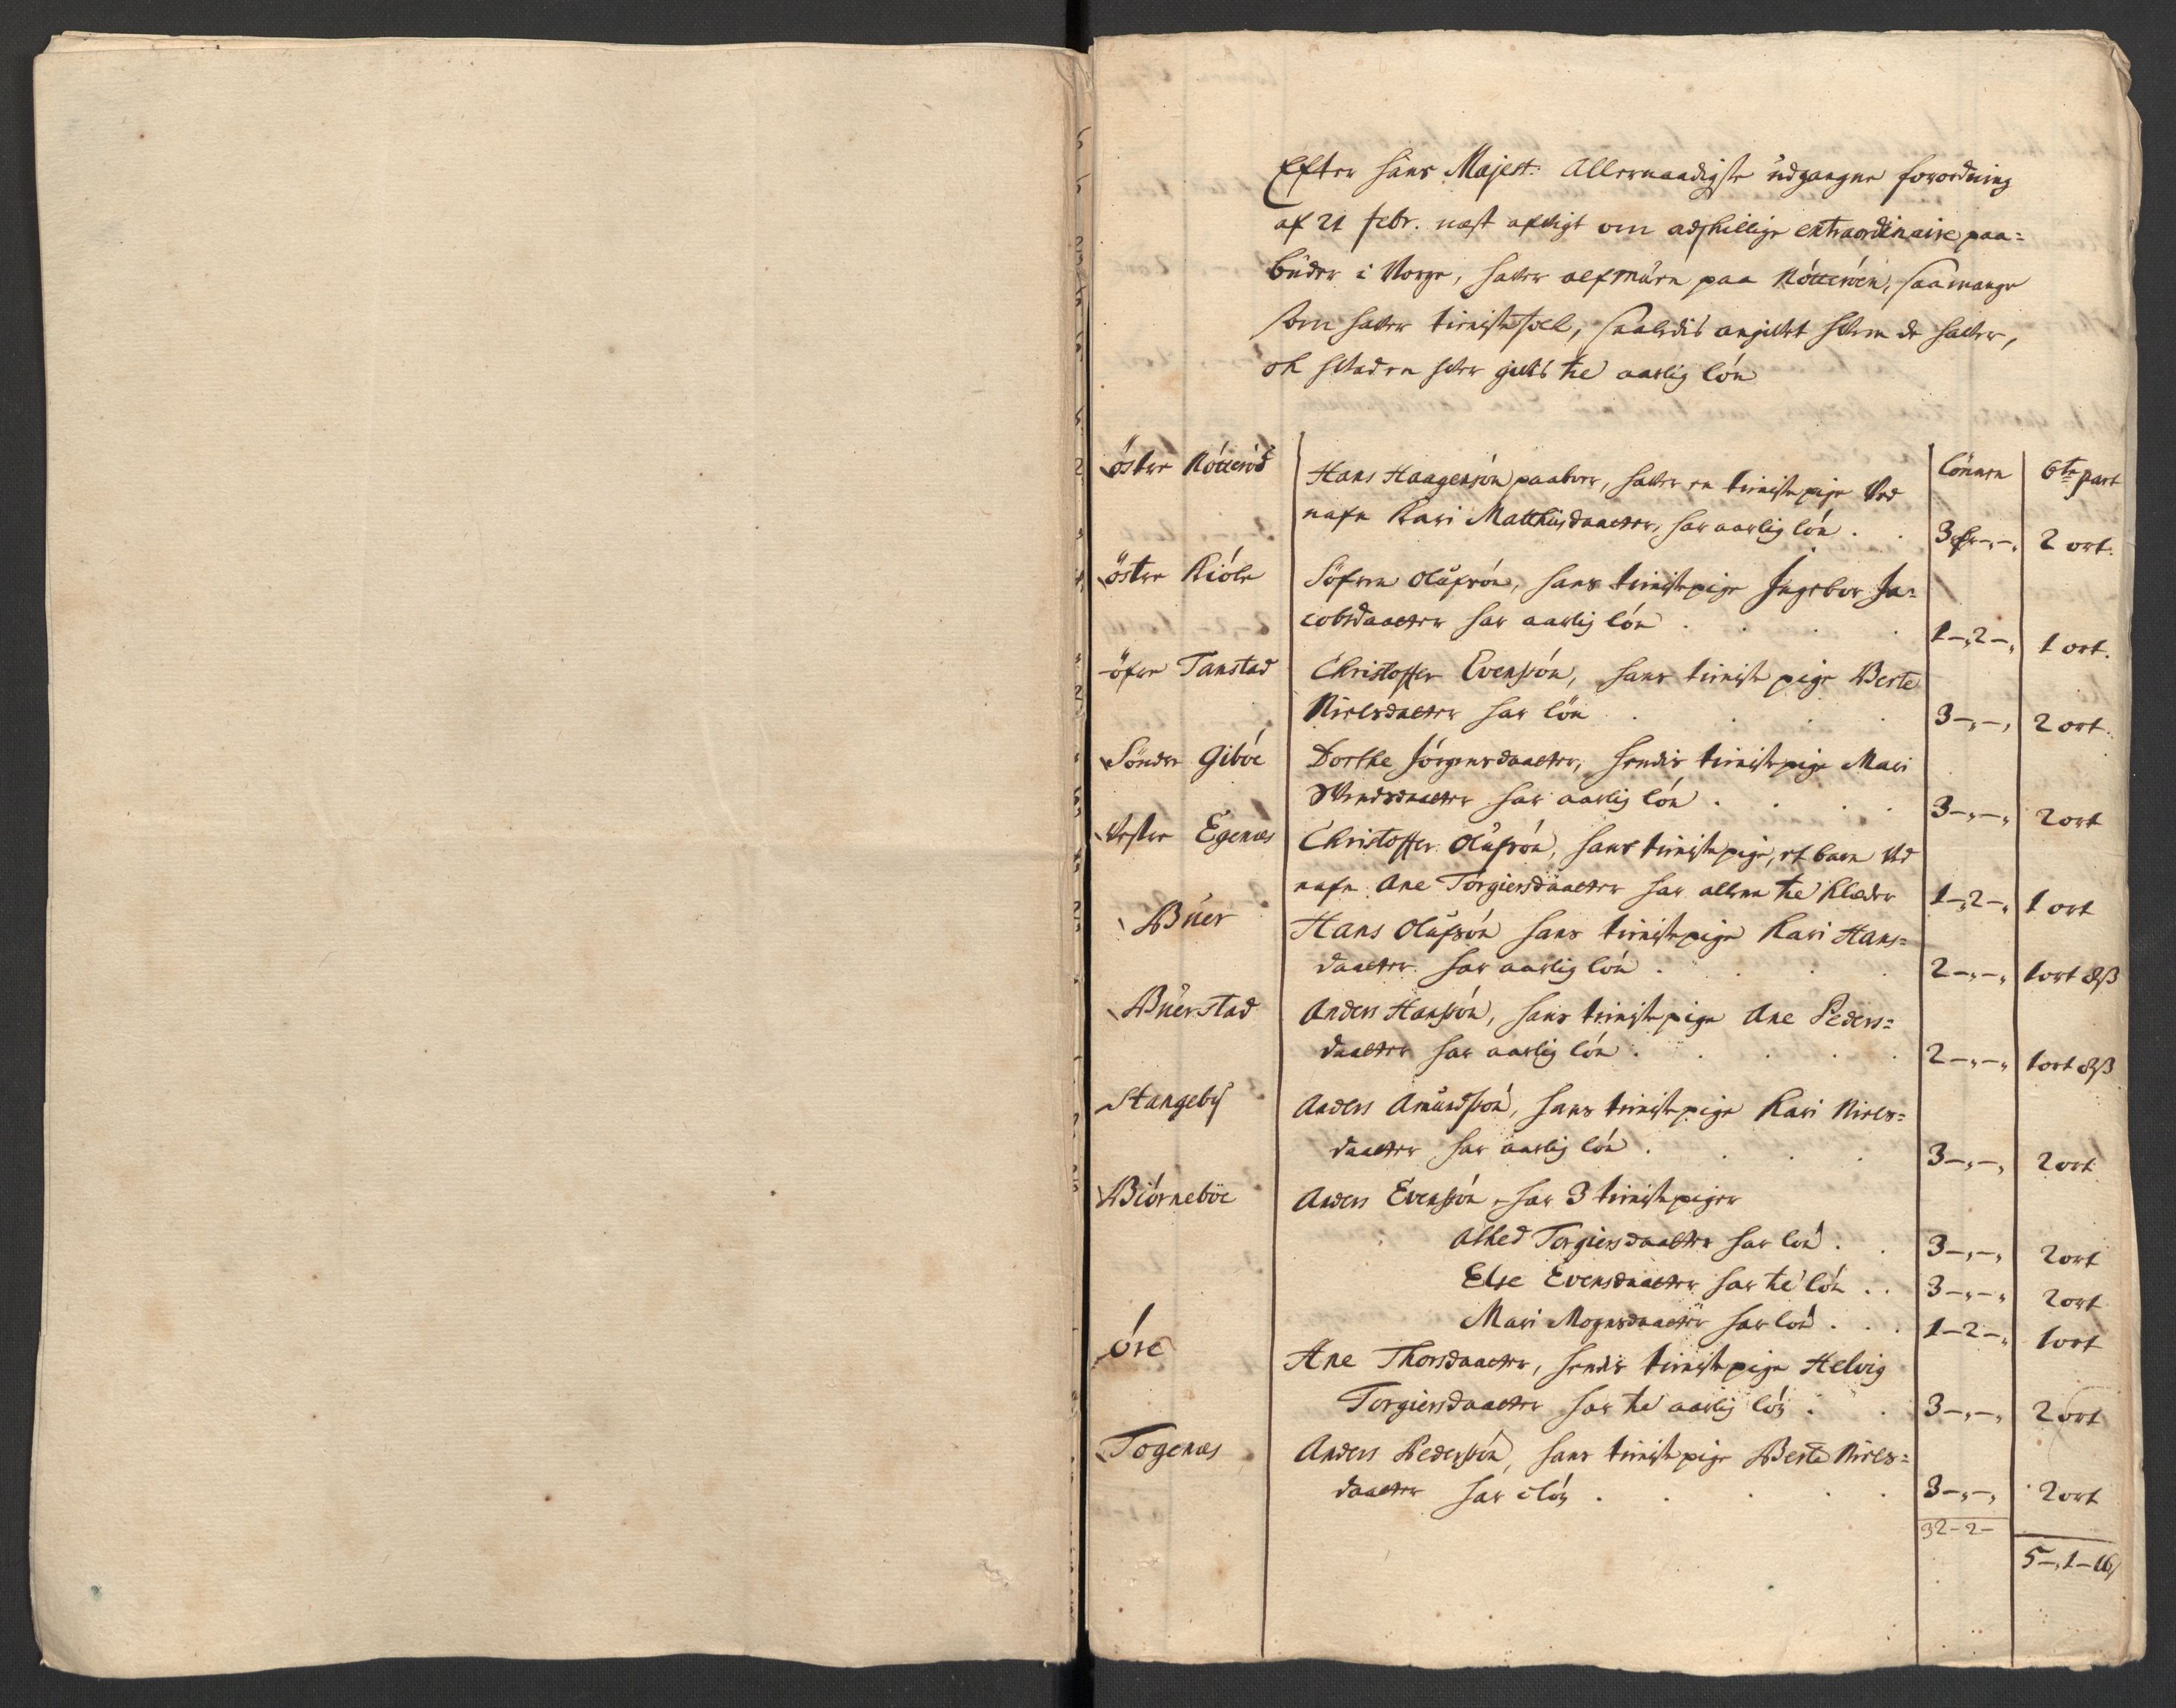 Efter Hans Majest: Allernaadigste udgangne forordning
af 21 febr. nest afvigt om adskillige extraordinaire paa=
buder i Norge, hafver almuen paa Nötteröen, saa mange
som hafver tienistefolk, saaledis angivet hvem de hafver,
oh hvad en hver gives til aarlig lön
Lönnen 6te part
östre Nötteröd Hans Haagensön paaboer, hafver en tieniste pige ved
nafn Kari Matthisdaatter, har aarlig lön . . 3 rdr-"-" 2 ort.
östre Kiöle Söfren Olufsön, hans tienistepige Ingebor Ja=
cobsdaatter har aarlig lön . . . 1-"2-" 1 ort.
öfre Tanstad Christoffer Evensön, hans tieniste pige Berte
Nielsdatter har lön . . . . 3-"-" 2 ort.
Sönder Giböe Dorthe Jörgensdaatter, hendis tienistepige Mari
Svendsdaatter har aarlig lön . . . . 3-"-" 2 ort
Vestre Egenæs Christoffer Olufsön, hans tienistepige, et barn ved
nafn Ane Torgiersdaatter har allene til Klæder 1-"2-" 1 ort
Buer Hans Olufsön hans tienistepige Kari Hans=
daatter har aarlig lön . . . . 2-"-" 1 ort 8 ß
Buerstad Anders Hansön, hans tienistepige Ane Peders=
daatter har aarlig lön . . . . 2-"-" 1 ort 8 ß
Stangeby Anders Amundsön, hans tienistepige Kari Niels=
daatter har aarlig lön . . . . 3-"-" 2 ort
Biörneböe Anders Evensön, har 3 tienistepiger
Alhed Torgiersdaatter har lön . . 3-"-" 2 ort
Else Evensdaatter har til lön . . 3-"-" 2 ort
Mari Mognsdaatter har lön . . . 1-2-" 1 ort
öre Ane Thorsdaatter, hendis tienistepige Helvig
Torgiersdaatter har til aarlig lön . . 3-"-" 2 ort
Togenæs Anders Pedersön, hans tienistepige Berte Niels=
daatter har i lön . . . . . 3-"-" 2 ort
32-2-
5-"1-16